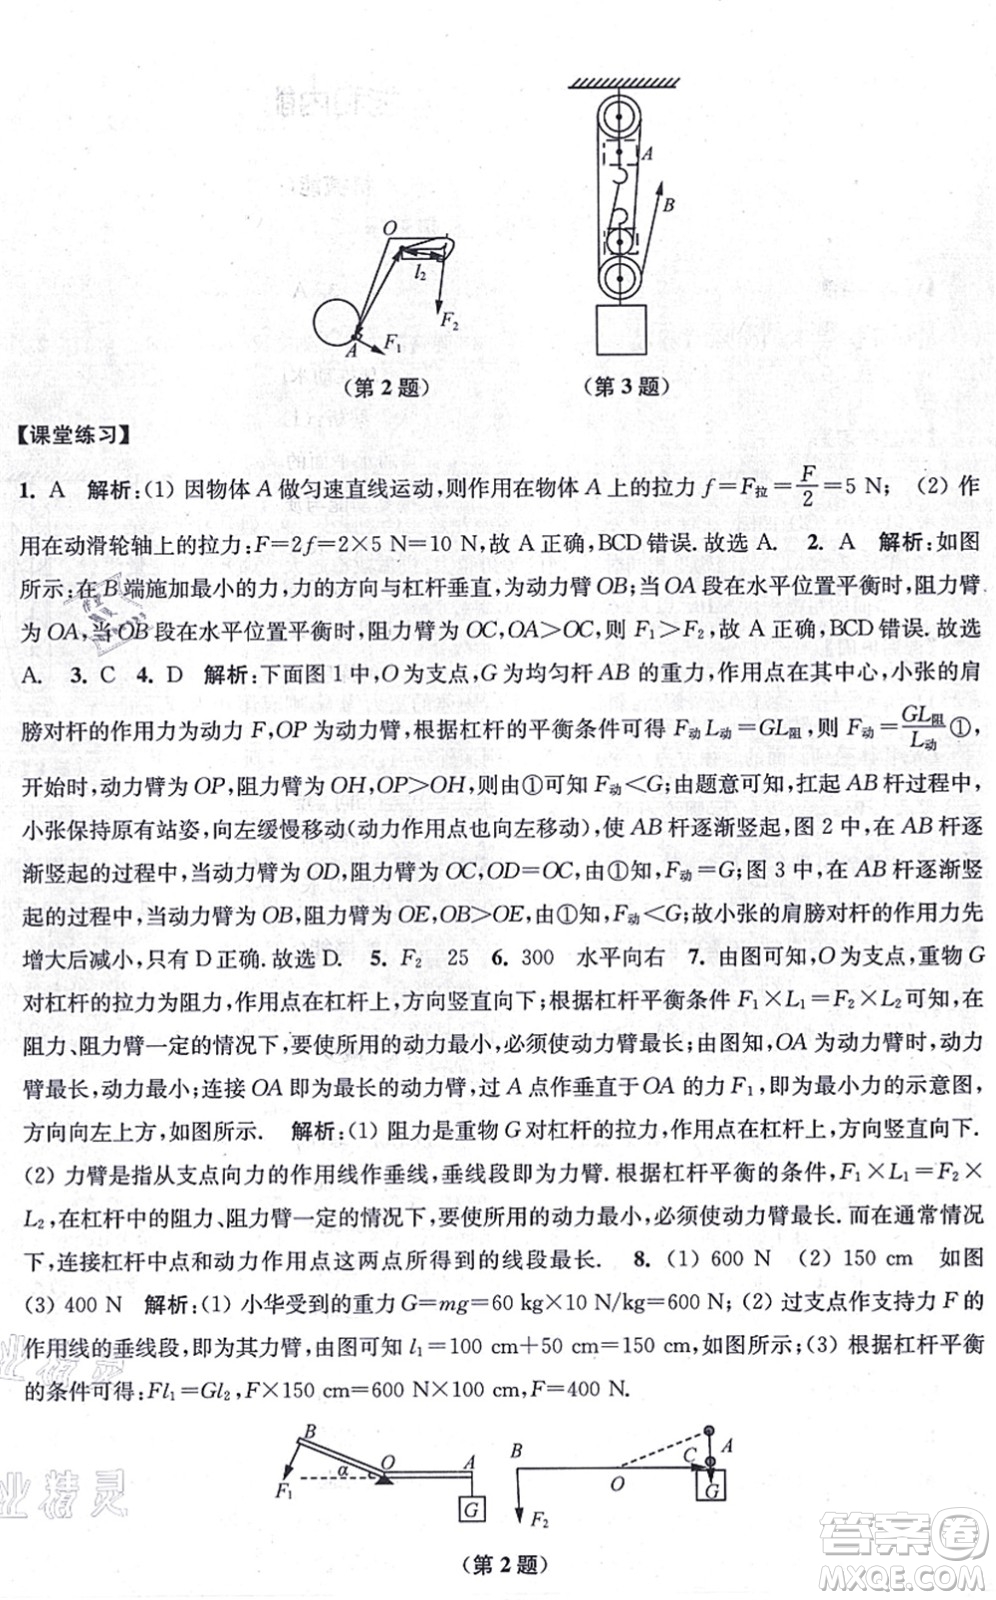 A
B
O
l₂
F₂
F₁
A
(第2题)
(第3题)
【课堂练习】
1. A 解析:(1) 因物体 A 做匀速直线运动,则作用在物体 A 上的拉力 f=F拉=F/2=5 N; (2) 作
用在动滑轮轴上的拉力:F=2f=2×5 N=10 N,故 A 正确,BCD 错误.故选 A. 2. A 解析:如图
所示:在 B 端施加最小的力,力的方向与杠杆垂直,为动力臂 OB;当 OA 段在水平位置平衡时,阻力臂
为 OA,当 OB 段在水平位置平衡时,阻力臂为 OC,OA>OC,则 F₁>F₂,故 A 正确,BCD 错误.故选
A. 3. C 4. D 解析:下面图 1 中,O 为支点,G 为均匀杆 AB 的重力,作用点在其中心,小张的肩
膀对杆的作用力为动力 F,OP 为动力臂,根据杠杆的平衡条件可得 F动L动=GL阻,则 F动=GL阻/L动①,
开始时,动力臂为 OP,阻力臂为 OH,OP>OH,则由①可知 F动<G;由题意可知,扛起 AB 杆过程中,
小张保持原有站姿,向左缓慢移动(动力作用点也向左移动),使 AB 杆逐渐竖起,图 2 中,在 AB 杆逐
渐竖起的过程中,当动力臂为 OD,阻力臂为 OC,OD=OC,由①知,F动=G;图 3 中,在 AB 杆逐渐竖
起的过程中,当动力臂为 OB,阻力臂为 OE,OB>OE,由①知,F动<G;故小张的肩膀对杆的作用力先
增大后减小,只有 D 正确.故选 D. 5. F₂ 25 6. 300 水平向右 7. 由图可知,O 为支点,重物 G
对杠杆的拉力为阻力,作用点在杠杆上,方向竖直向下;根据杠杆平衡条件 F₁×L₁=F₂×L₂可知,在
阻力、阻力臂一定的情况下,要使所用的动力最小,必须使动力臂最长;由图知,OA 为动力臂时,动力
臂最长,动力最小;连接 OA 即为最长的动力臂,过 A 点作垂直于 OA 的力 F₁,即为最小力的示意图,
方向向左上方,如图所示. 解析:(1) 阻力是重物 G 对杠杆的拉力,作用点在杠杆上,方向竖直向下.
(2) 力臂是指从支点向力的作用线作垂线,垂线段即为力臂.根据杠杆平衡的条件,F₁×L₁=F₂×
L₂,在杠杆中的阻力、阻力臂一定的情况下,要使所用的动力最小,必须使动力臂最长.而在通常情况
下,连接杠杆中支点和动力作用点这两点所得到的线段最长. 8. (1) 600 N (2) 150 cm 如图
(3) 400 N 解析:(1) 小华受到的重力 G=mg=60 kg×10 N/kg=600 N;(2) 过支点作支持力 F 的
作用线的垂线段,即为其力臂,由图可知 l₁=100 cm+50 cm=150 cm,如图所示;(3) 根据杠杆平衡
的条件可得:Fl₁=Gl₂,F×150 cm=600 N×100 cm,F=400 N.
B
O
A
α
F₁
G
B
O
C
A
G
F₂
(第2题)
答案圈
MXQE.COM